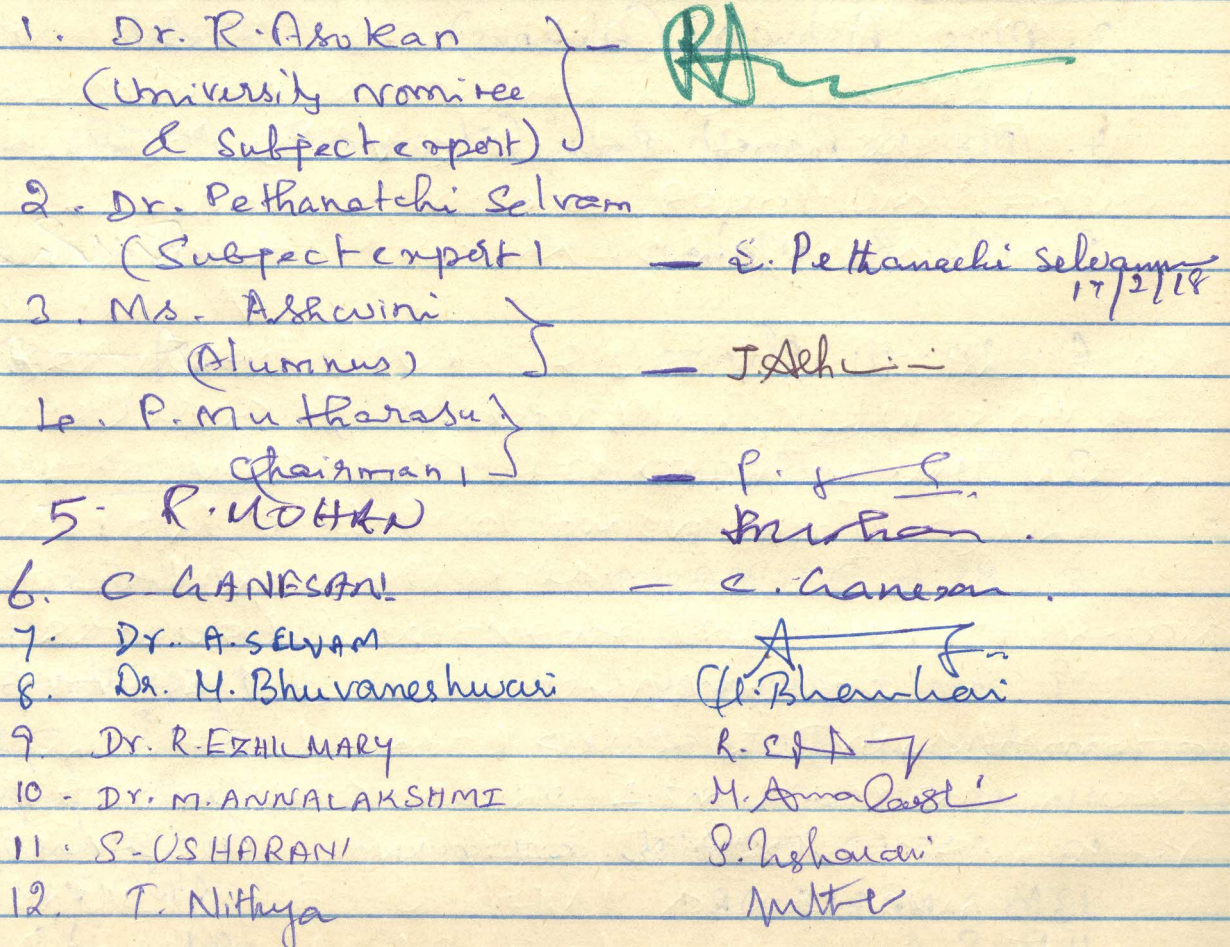 1. Dr. R. Asokan } -
(University nominee
& Subject expert)
2. Dr. Pethanatchi Selvam
(Subject expert) — S. Pethanachi Selvam
17/2/18
3. Ms. Ashwini }
(Alumnus) — J. Ash
4. P. Mutharasu }
Chairman) — P.
5- R. MOHAN
6. C. GANESAN - C. Ganesan.
7. Dr. A. SELVAM A
8. Dr. M. Bhuvaneshwari
9 Dr. R. EZHIL MARY R.
10 - Dr. M. ANNALAKSHMI M. Annalakshmi
11. S. USHARANI S. Usharani
12. T. Nithya